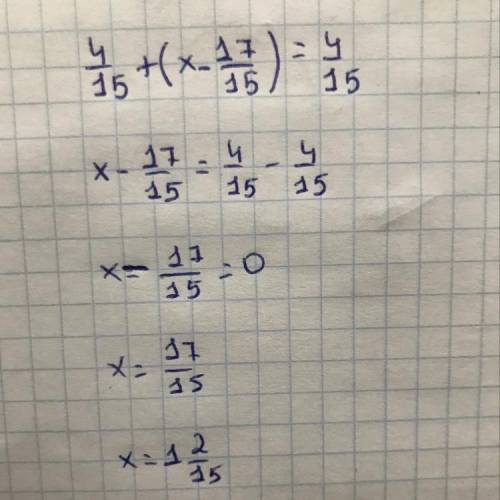 4/15 + (x - 17/15) = 4/15
x - 17/15 = 4/15 - 4/15
x - 17/15 = 0
x = 17/15
x = 1 2/15